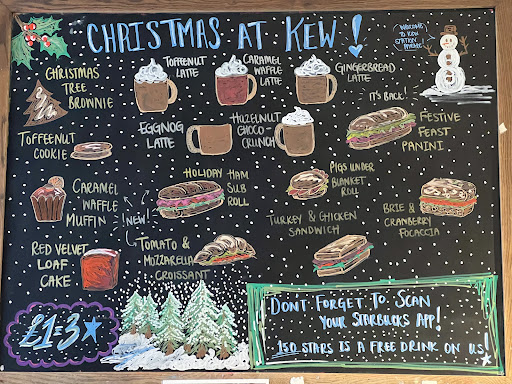 CHRISTMAS AT KEW!
WELCOME
TO KEW
STATION
TOFFEENUT
LATTE
CARAMEL
WAFFLE
LATTE
GINGERBREAD
LATTE
CHRISTMAS
TREE
BROWNIE
IT'S BACK!
FESTIVE
FEAST
PANINI
EGGNOG
LATTE
HAZELNUT
CHOCO-
CRUNCH
TOFFEENUT
COOKIE
PIGS UNDER
BLANKET
ROLL
HOLIDAY HAM
SUB
ROLL
CARAMEL
WAFFLE
MUFFIN
NEW!
BRIE &
CRANBERRY
FOCACCIA
TURKEY & CHICKEN
SANDWICH
TOMATO &
MOZZARELLA
CROISSANT
RED VELVET
LOAF
CAKE
£1=3★
DON'T FORGET TO SCAN
YOUR STARBUCKS APP!
150 STARS IS A FREE DRINK ON US!